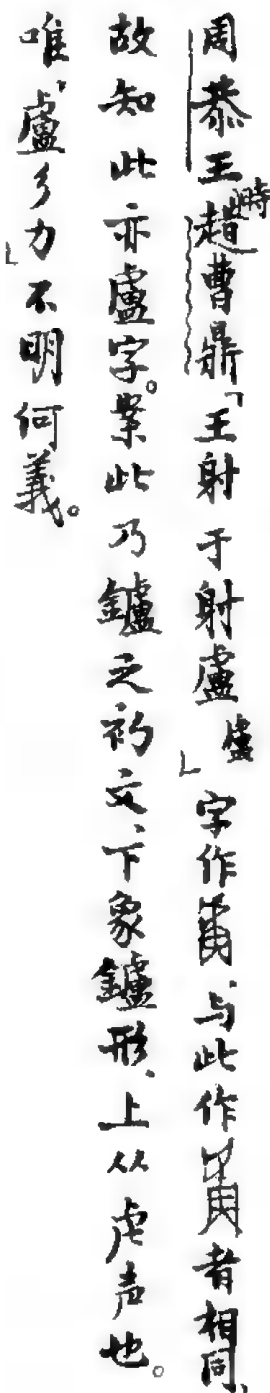 周恭王時趞曹鼎「王射于射盧」盧字作與此作者相同、
故知此亦盧字。案此乃鑪之初文、下象鑪形、上从虍声也。
唯「盧豸力」不明何義。